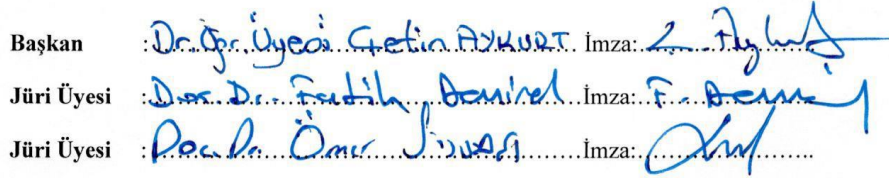 Başkan : Dr. Öğr. Üyesi Çetin AYKURT İmza:
Jüri Üyesi : Doç. Dr. Fatih Demirel İmza: F. Demi
Jüri Üyesi : Doç. Dr. Ömer İmza: